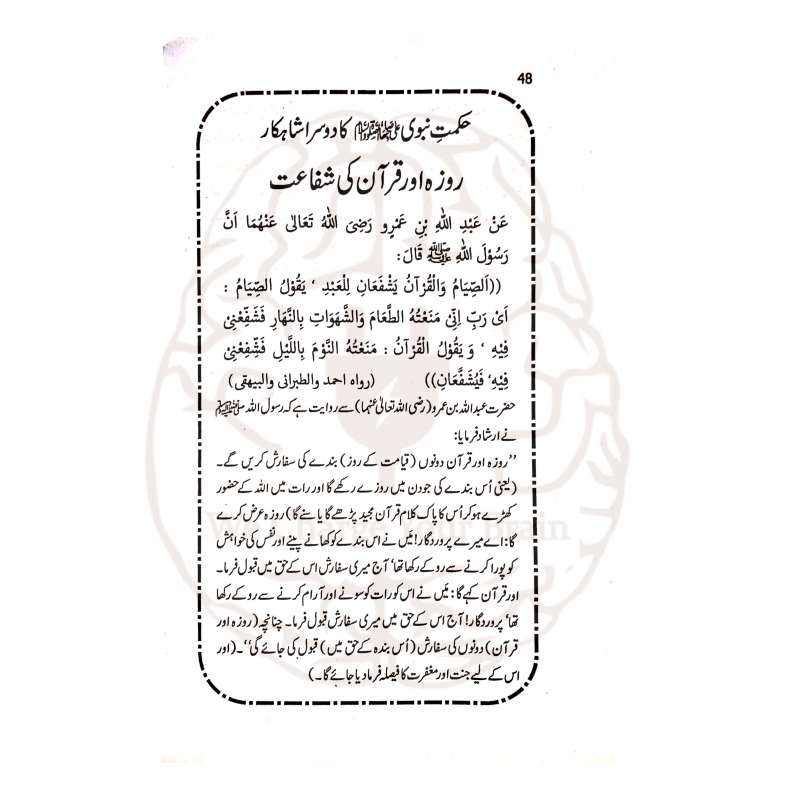 48
حکمتِ نبوی ﷺ کا دوسرا شاہکار
روزہ اور قرآن کی شفاعت
عَنْ عَبْدِ اللّٰهِ بْنِ عَمْرٍو رَضِیَ اللّٰهُ تَعَالٰی عَنْهُمَا اَنَّ
رَسُوْلَ اللّٰهِ ﷺ قَالَ:
((اَلصِّیَامُ وَالْقُرْآنُ یَشْفَعَانِ لِلْعَبْدِ ‘ یَقُوْلُ الصِّیَامُ :
اَیْ رَبِّ اِنِّیْ مَنَعْتُهُ الطَّعَامَ وَالشَّهَوَاتِ بِالنَّهَارِ فَشَفِّعْنِیْ
فِیْهِ ‘ وَ یَقُوْلُ الْقُرْآنُ : مَنَعْتُهُ النَّوْمَ بِاللَّیْلِ فَشَفِّعْنِیْ
فِیْهِ‘ فَیُشَفَّعَانِ)) (رواه احمد والطبرانی والبیهقی)
حضرت عبداللہ بن عمرو (رضی اللہ تعالیٰ عنہما) سے روایت ہے کہ رسول اللہ ﷺ
نے ارشاد فرمایا:
’’روزہ اور قرآن دونوں (قیامت کے روز) بندے کی سفارش کریں گے۔
(یعنی اُس بندے کی جو دن میں روزے رکھے گا اور رات میں اللہ کے حضور
کھڑے ہو کر اُس کا پاک کلام قرآن مجید پڑھے گا یا سنے گا) روزہ عرض کرے
گا: اے میرے پروردگار! مَیں نے اس بندے کو کھانے پینے اور نفس کی خواہش
کو پورا کرنے سے روکے رکھا تھا‘ آج میری سفارش اس کے حق میں قبول فرما۔
اور قرآن کہے گا: مَیں نے اس کو رات کو سونے اور آرام کرنے سے روکے رکھا
تھا‘ پروردگار! آج اس کے حق میں میری سفارش قبول فرما۔ چنانچہ (روزہ اور
قرآن) دونوں کی سفارش (اُس بندہ کے حق میں) قبول کی جائے گی‘‘۔ (اور
اس کے لیے جنت اور مغفرت کا فیصلہ فرما دیا جائے گا۔)